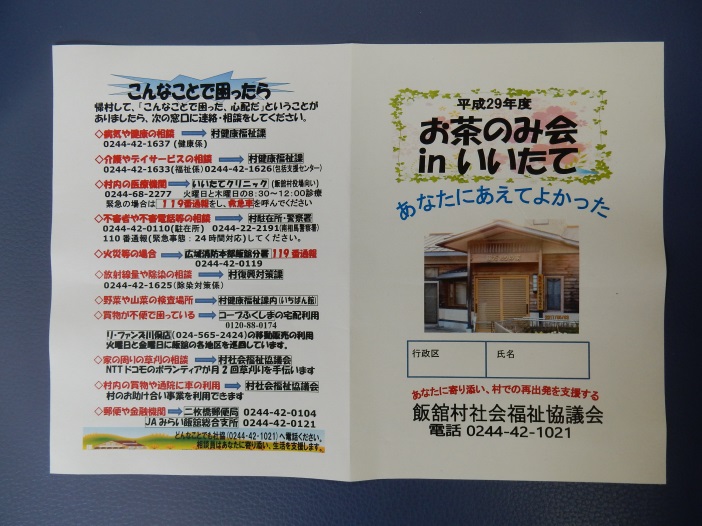 こんなことで困ったら
帰村して、「こんなことで困った、心配だ」ということが
ありましたら、次の窓口に連絡・相談をしてください。
◇病気や健康の相談 ⟹ 村健康福祉課
0244-42-1637(健康係)
◇介護やデイサービスの相談 ⟹ 村健康福祉課
0244-42-1633(福祉係) 0244-42-1626(包括支援センター)
◇村内の医療機関 ⟹ いいたてクリニック(飯舘村役場向い)
0244-68-2277 火曜日と木曜日の8:30~12:00診療
緊急の場合は119番通報をし、救急車を呼んでください
◇不審者や不審電話等の相談 ⟹ 村駐在所・警察署
0244-42-0110(駐在所) 0244-22-2191(南相馬警察署)
110番通報(緊急事態:24時間対応)してください。
◇火災等の場合 ⟹ 広域消防本部飯舘分署 119番通報
0244-42-0119
◇放射線量や除染の相談 ⟹ 村復興対策課
0244-42-1625(除染対策係)
◇野菜や山菜の検査場所 ⟹ 村健康福祉課内(いちばん館)
◇買物が不便で困っている ⟹ コープふくしまの宅配利用
0120-88-0174
リ・ファンズ川俣店(024-565-2424)の移動販売の利用
火曜日と金曜日に飯舘の各地区を巡回しています。
◇家の周りの草刈の相談 ⟹ 村社会福祉協議会
NTTドコモのボランティアが月2回草刈を手伝います
◇村内の買物や通院に車の利用 ⟹ 村社会福祉協議会
村のお助け合い事業を利用できます
◇郵便や金融機関 ⟹ 二枚橋郵便局 0244-42-0104
JAみらい飯舘総合支所 0244-42-0121
どんなことでも社協(0244-42-1021)へ電話ください。
相談員はあなたに寄り添い、生活を支援します。
平成29年度
お茶のみ会
in いいたて
あなたにあえてよかった
行政区 氏名
あなたに寄り添い、村での再出発を支援する
飯舘村社会福祉協議会
電話 0244-42-1021